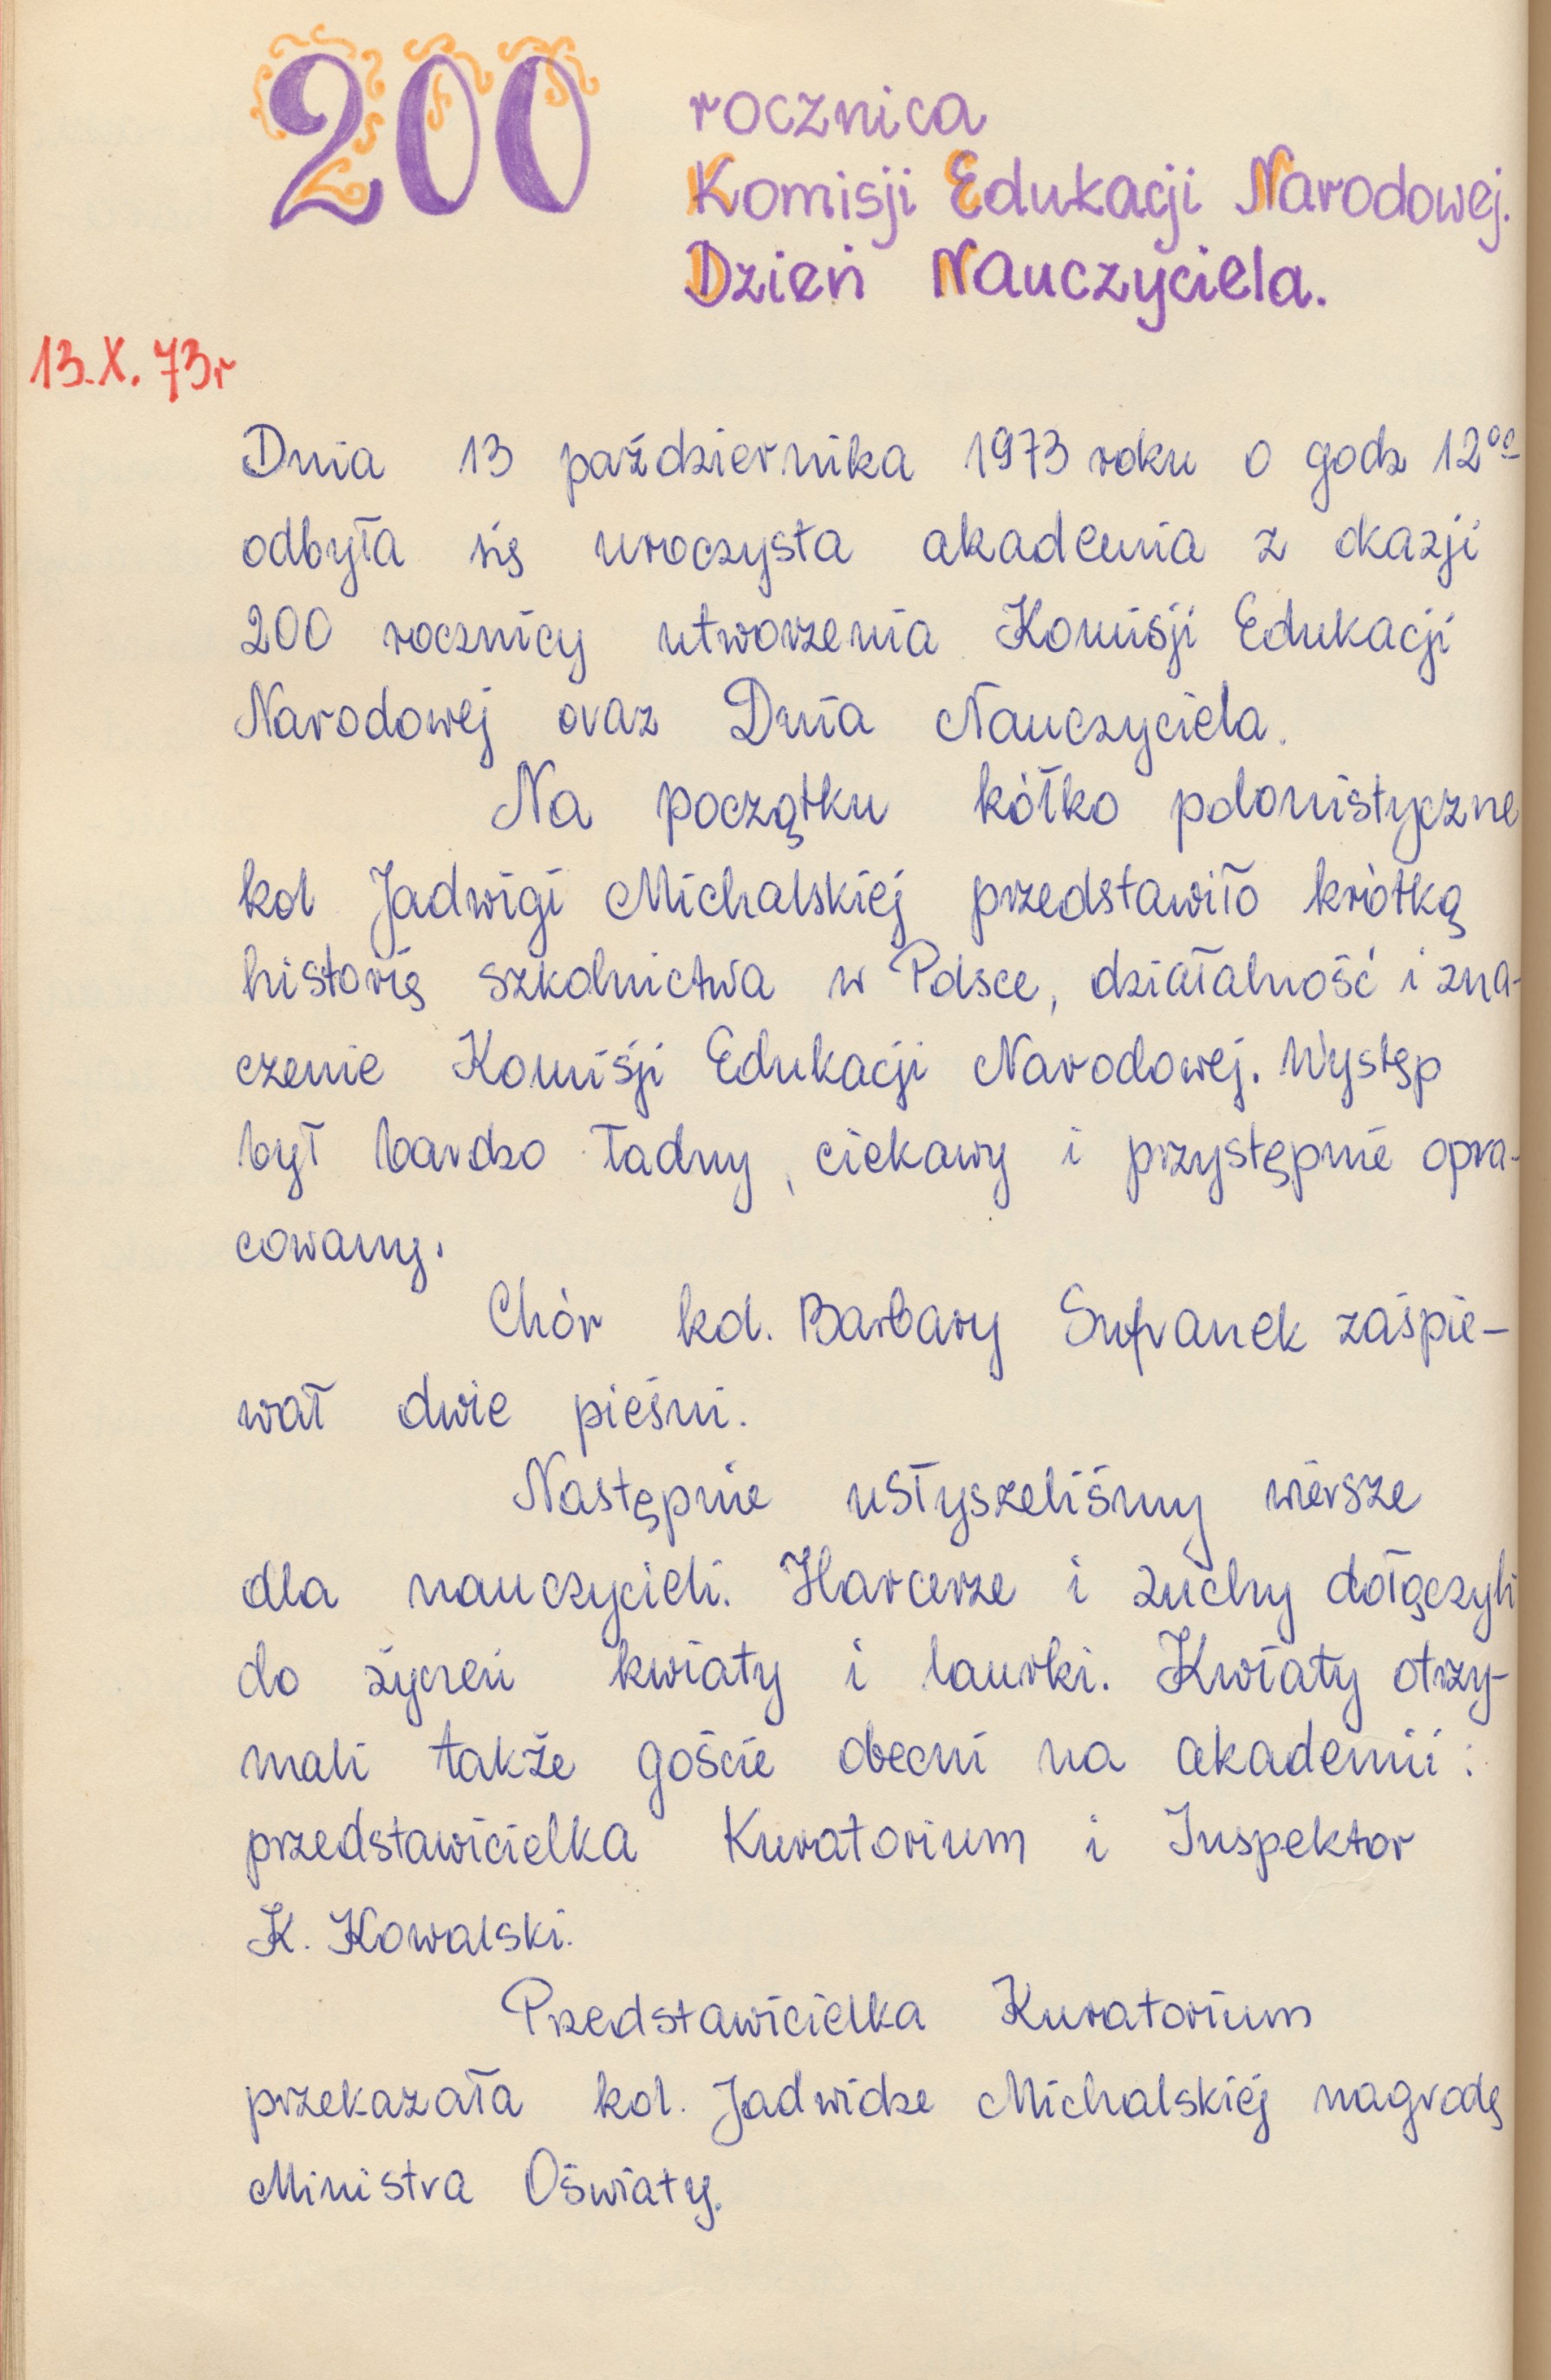 200 rocznica
Komisji Edukacji Narodowej.
Dzień Nauczyciela.
13.X.73r
Dnia 13 października 1973 roku o godz 12⁰⁰
odbyła się uroczysta akademia z okazji
200 rocznicy utworzenia Komisji Edukacji
Narodowej oraz Dnia Nauczyciela.
Na początku kółko polonistyczne
kol Jadwigi Michalskiej przedstawiło krótką
historię szkolnictwa w Polsce, działalność i zna-
czenie Komisji Edukacji Narodowej. Występ
był bardzo ładny, ciekawy i przystępnie opra-
cowany.
Chór kol. Barbary Sufranek zaśpie-
wał dwie pieśni.
Następnie usłyszeliśmy wiersze
dla nauczycieli. Harcerze i zuchy dołączyli
do życzeń kwiaty i laurki. Kwiaty otrzy-
mali także goście obecni na akademii:
przedstawicielka Kuratorium i Inspektor
K. Kowalski.
Przedstawicielka Kuratorium
przekazała kol. Jadwidze Michalskiej nagrodę
Ministra Oświaty.